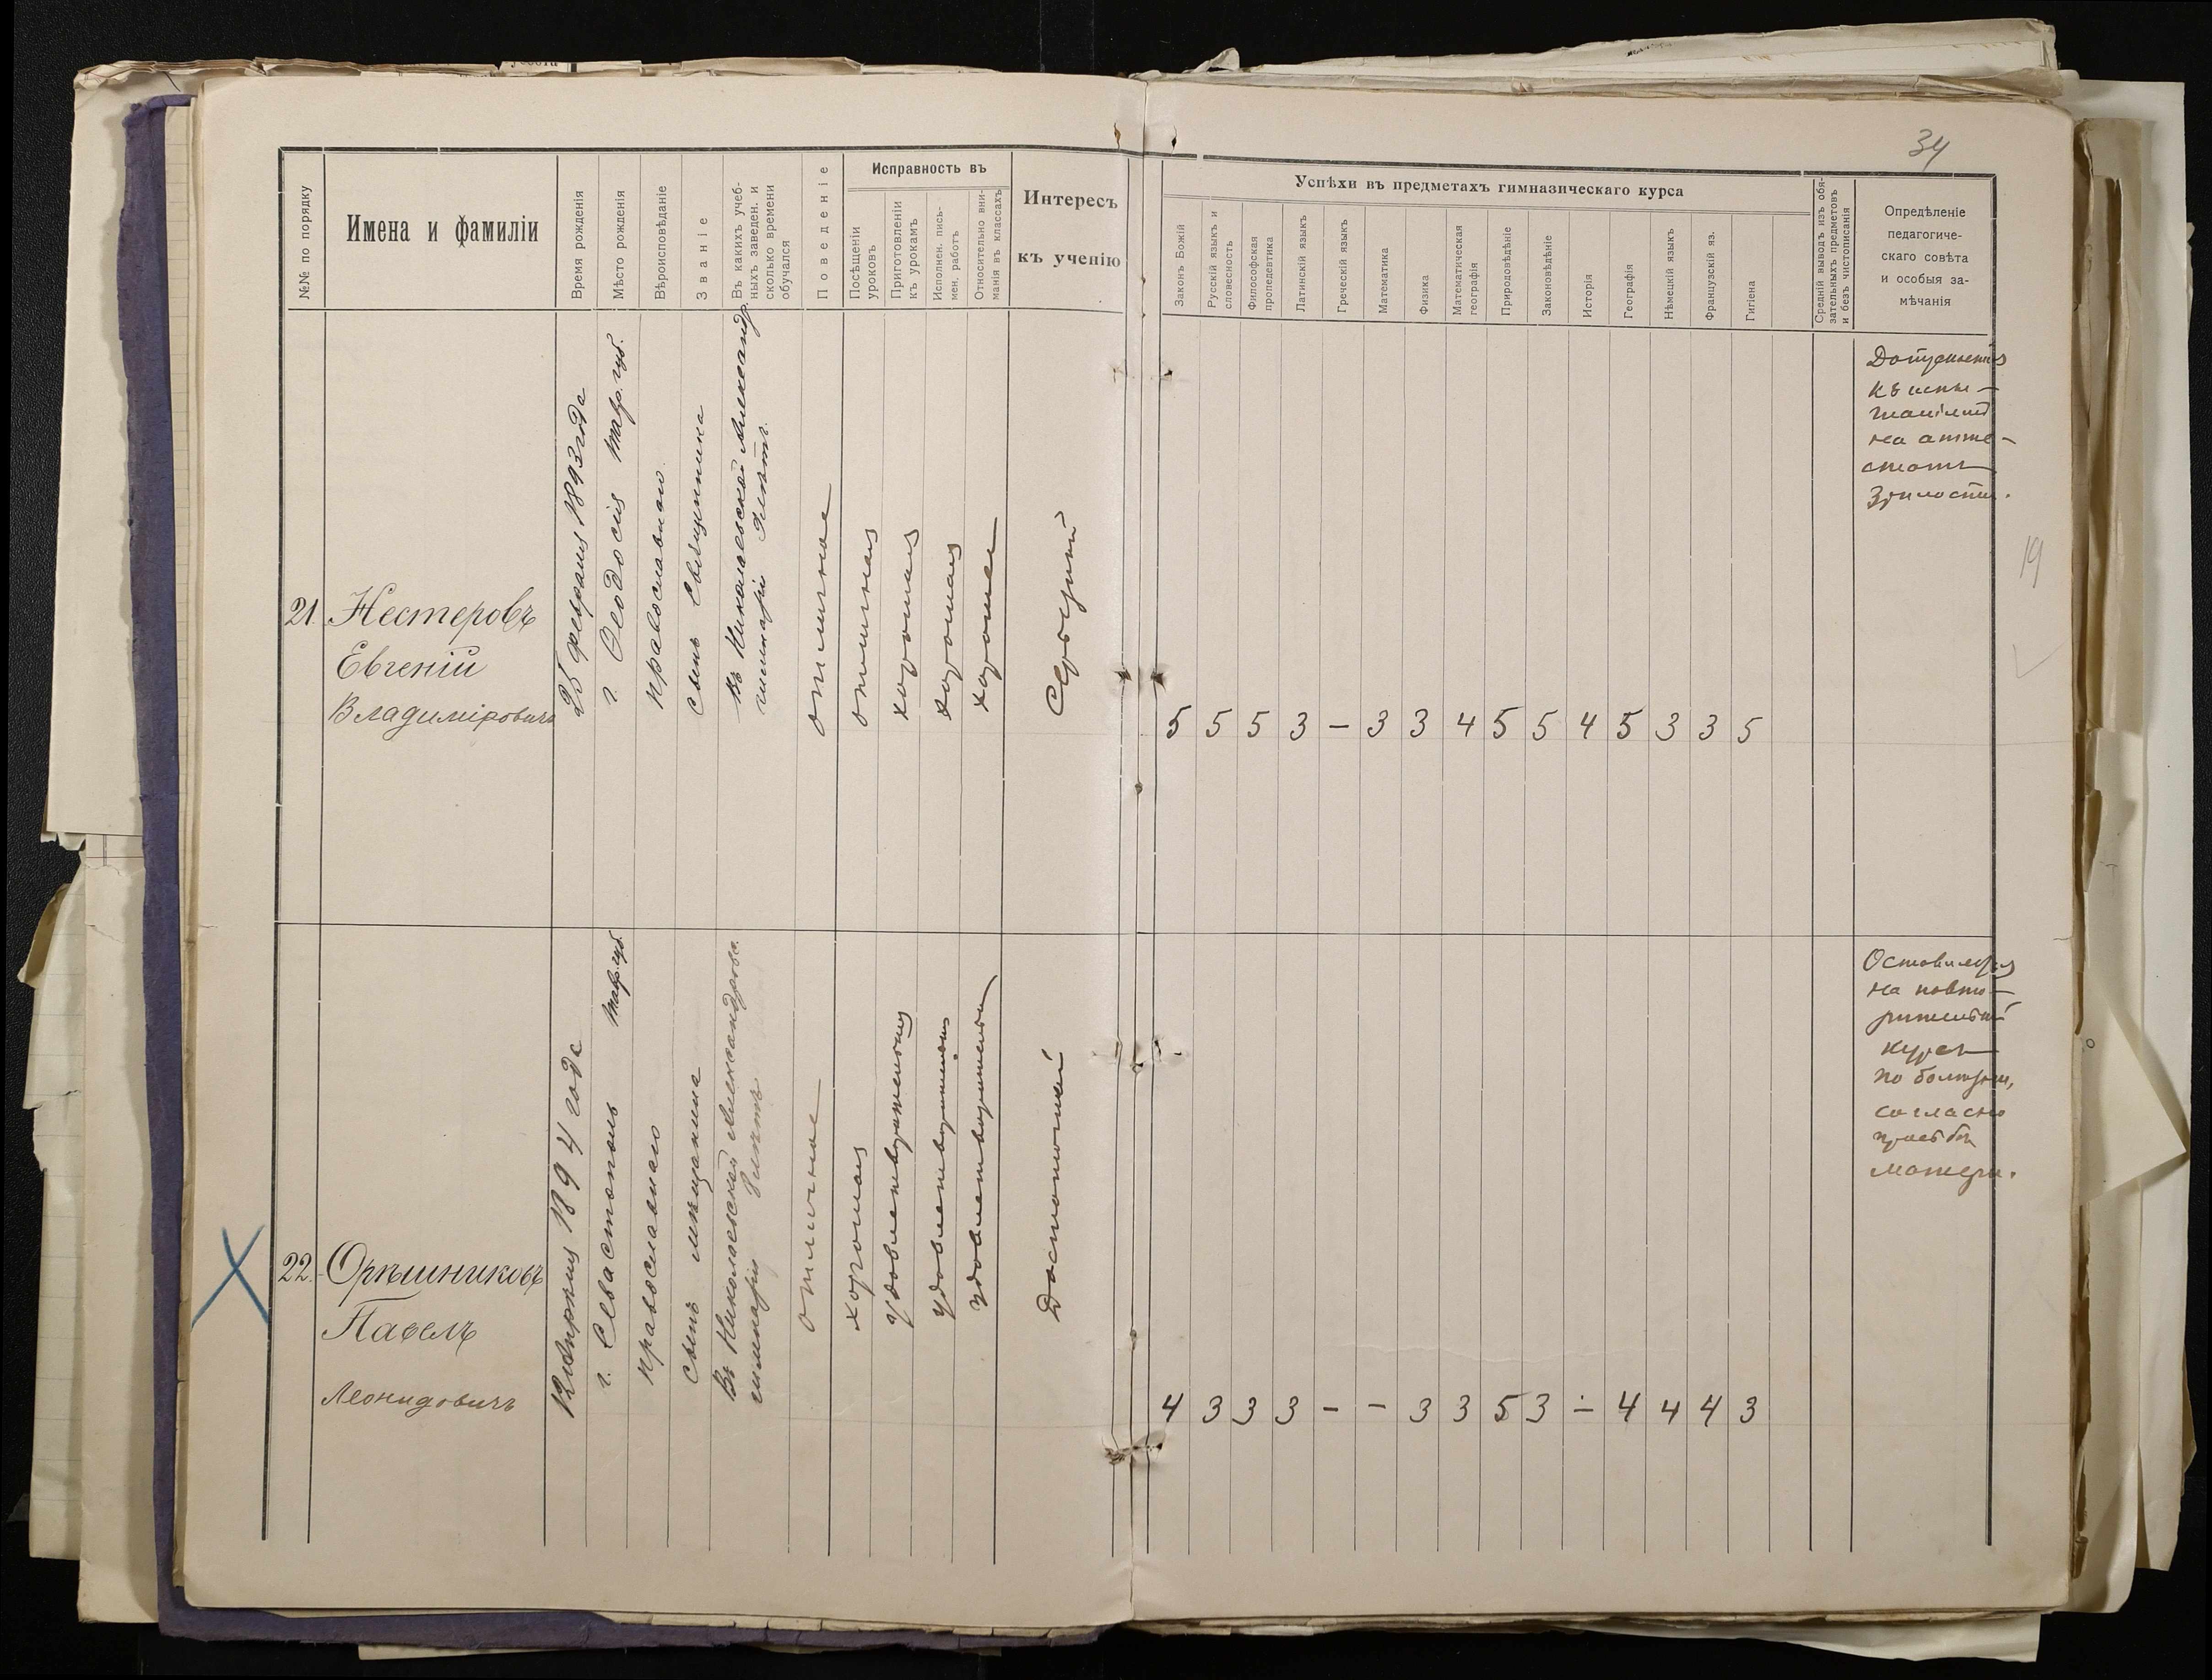 34
№№ по порядку
Имена и фамиліи
Время рожденія
Мѣсто рожденія
Вѣроисповѣданіе
Званіе
Въ какихъ учеб-
ныхъ заведен. и
сколько времени
обучался
Поведеніе
Исправность въ
Посѣщеніи
уроковъ
Приготовленіи
къ урокамъ
Исполнен. пись-
мен. работъ
Относительно вни-
манія въ классахъ
Интересъ
къ ученію
Успѣхи въ предметахъ гимназическаго курса
Законъ Божій
Русскій языкъ и
словесность
Философская
пропедевтика
Латинскій языкъ
Греческій языкъ
Математика
Физика
Математическая
географія
Природовѣдѣніе
Законовѣдѣніе
Исторія
Географія
Нѣмецкій языкъ
Французскій яз.
Гигіена
Средній выводъ изъ обя-
зательныхъ предметовъ
и безъ чистописанія
Опредѣленіе
педагогиче-
скаго совѣта
и особыя за-
мѣчанія
21.
Нестеровъ
Евгеній
Владиміровичъ
25 февраля 1893 года
г. Ѳеодосія Тавр. губ.
православнаго
сынъ священника
Въ Николаевской Александр.
гимназіи 9 лѣтъ.
отличное
отличная
хорошая
хорошая
хорошее
Средній
5 5 5 3 – 3 3 4 5 5 4 5 3 3 5
Допускается
къ испы-
таніямъ
на атте-
статъ
зрѣлости.
19
22.
Орѣшниковъ
Павелъ
Леонидовичъ
12 Апрѣля 1894 года
г. Севастополь Тавр. губ.
православнаго
сынъ мѣщанина
Въ Николаевской Александровск.
гимназіи лѣтъ
отличное
хорошая
удовлетворительная
удовлетворительная
удовлетворительное
Достаточный
4 3 3 3 – – 3 3 5 3 – 4 4 4 3
Оставляется
на повто-
рительный
курсъ
по болѣзни,
согласно
просьбы
матери.